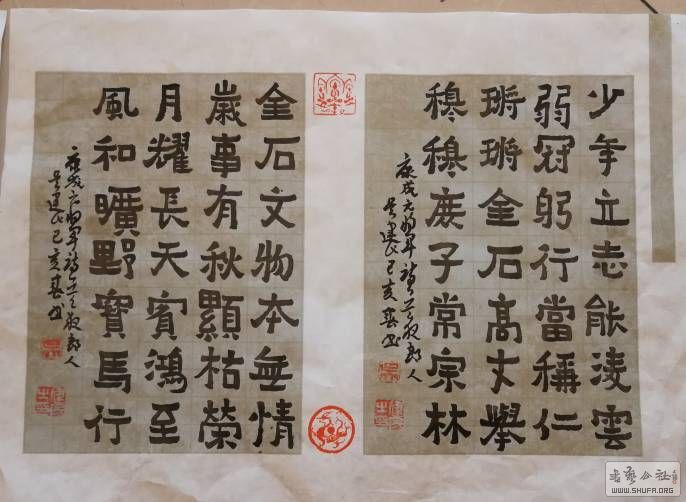 少年立志能凌雲
弱冠躬行當稱仁
金石高丈舉
穆穆庶子常宗林
己亥春書
金石文物本無情
歲事有秋顯枯榮
月耀長天賓鴻至
風和曠野寶馬行
己亥春書
书法公社
WWW.SHUFA.ORG